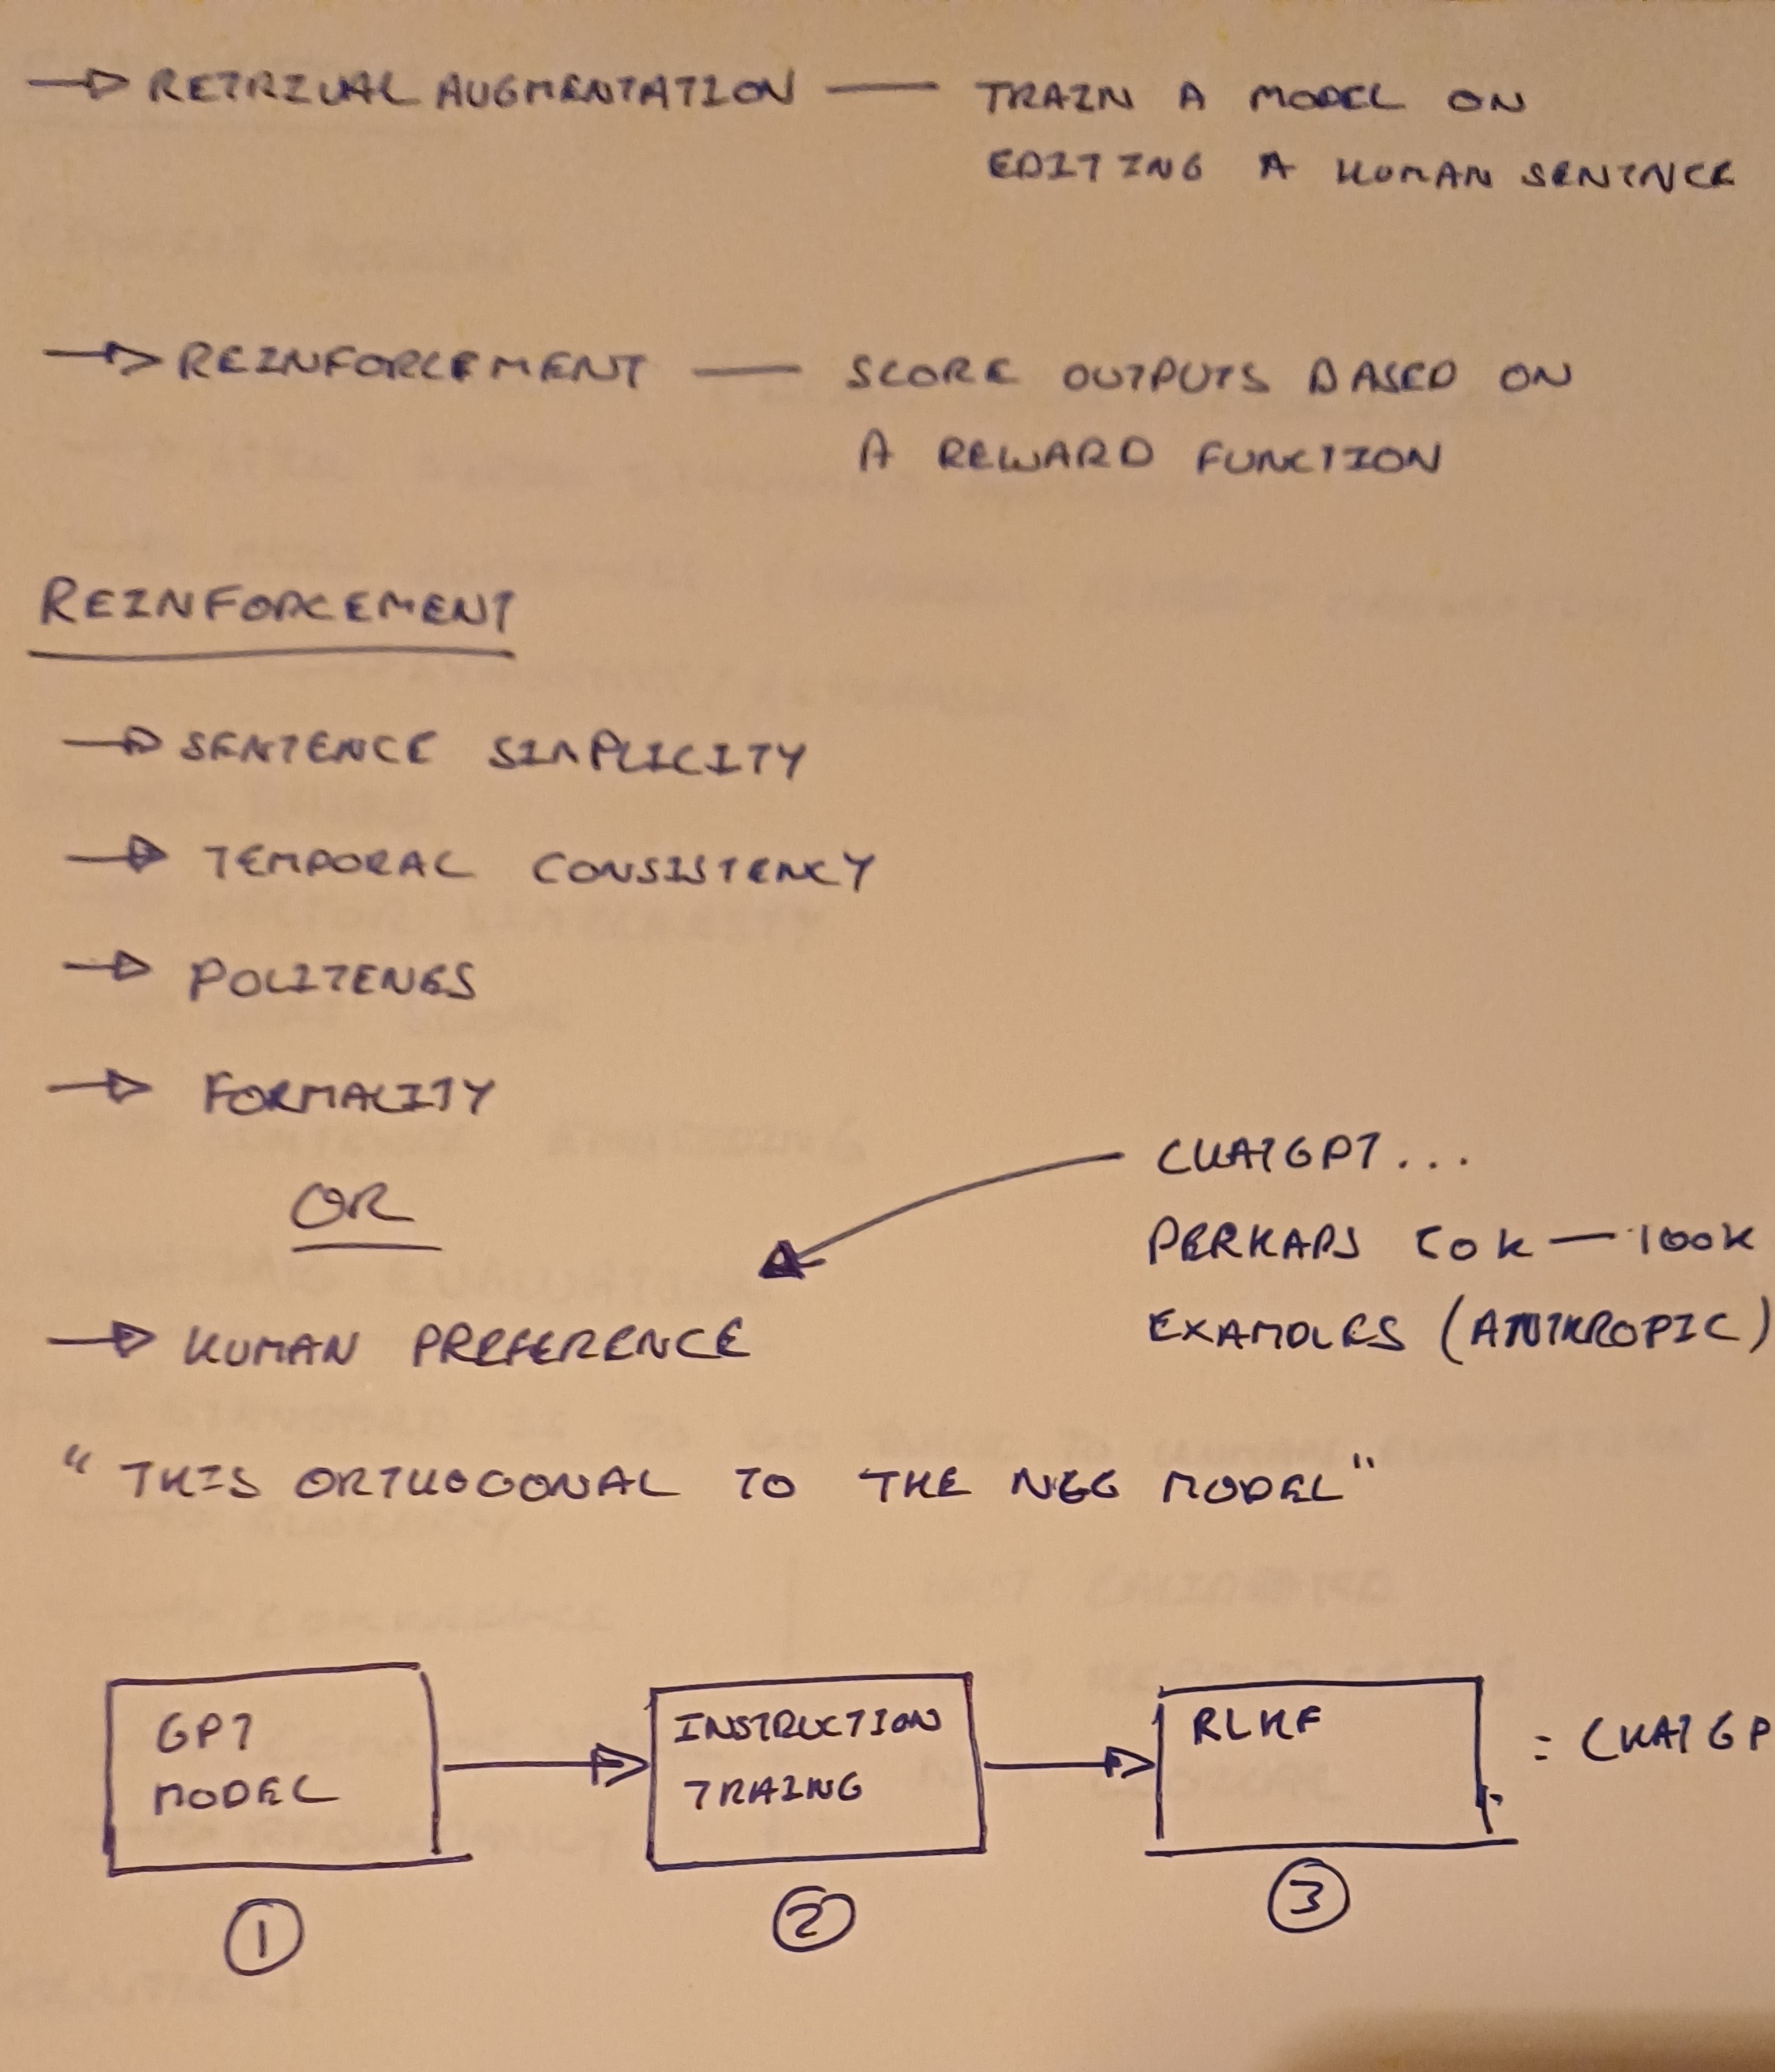 RETRIVAL AUGMENTATION — TRAIN A MODEL ON
EDITING A HUMAN SENTNCE
REINFORCEMENT — SCORE OUTPUTS BASED ON
A REWARD FUNCTION
REINFORCEMENT
SENTENCE SIMPLICITY
TEMPORAL CONSISTENCY
POLITENESS
FORMALITY
OR
CHATGPT...
PERHAPS 50K — 100K
EXAMPLES (ANTHROPIC)
HUMAN PREFERENCE
"THIS ORTHOGONAL TO THE MODEL"
GPT
MODEL
INSTRUCTION
TRAING
RLHF
= CHATGP
1
2
3